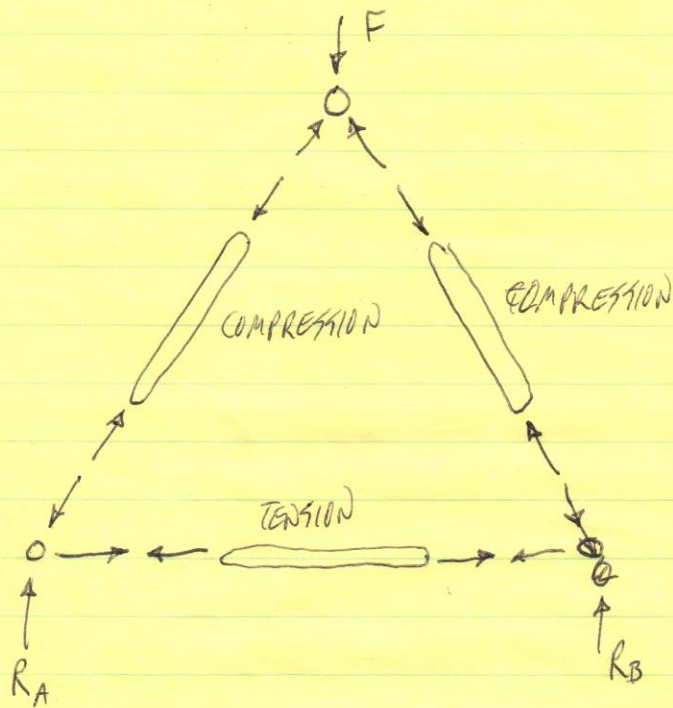 F
COMPRESSION
COMPRESSION
TENSION
R_A
R_B